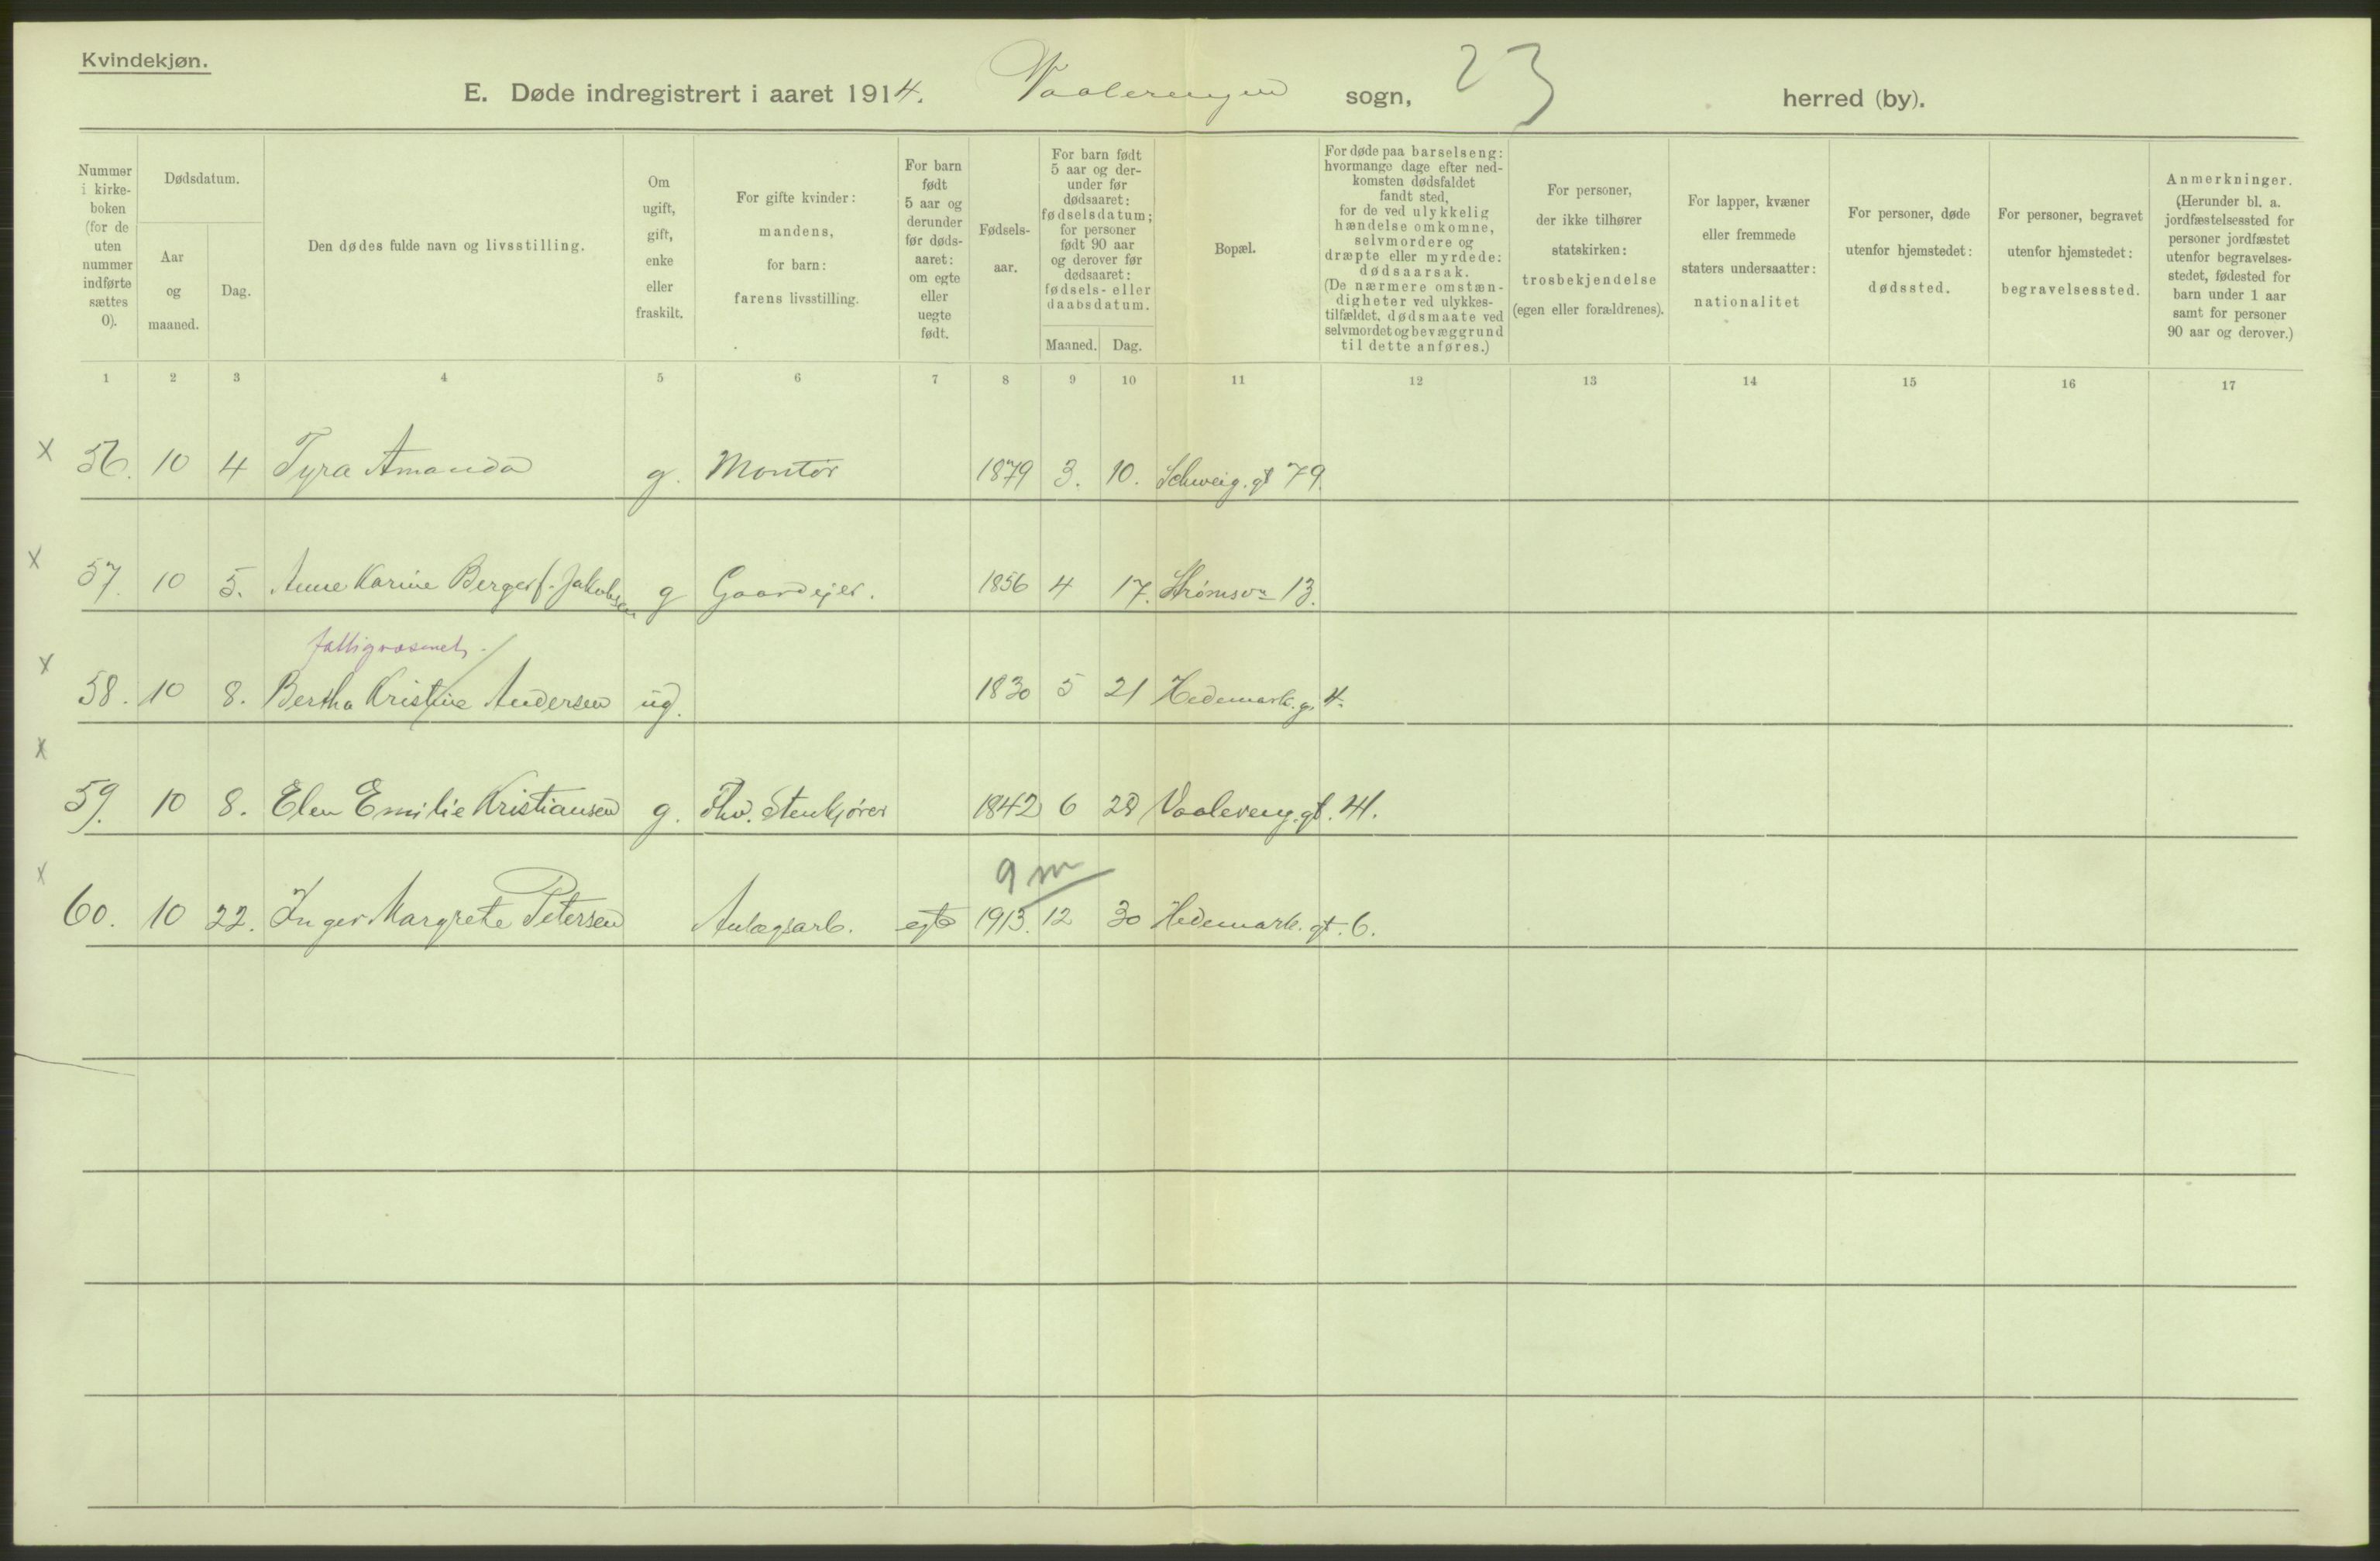 Kvindekjøn.
E. Døde indregistrert i aaret 1914. Vaalerengen sogn, 23 herred (by).
Nummer i kirke-boken (for de uten nummer indførte sættes 0).
Dødsdatum.
Aar og maaned.
Dag.
Den dødes fulde navn og livsstilling.
Om ugift, gift, enke eller fraskilt.
For gifte kvinder: mandens, for barn: farens livsstilling.
For barn født 5 aar og derunder før døds-aaret: om egte eller uegte født.
Fødsels-aar.
For barn født 5 aar og der-under før dødsaaret: fødselsdatum; for personer født 90 aar og derover før dødsaaret: fødsels- eller daabsdatum.
Maaned. Dag.
Bopæl.
For døde paa barselseng: hvormange dage efter ned-komsten dødsfaldet fandt sted, for de ved ulykkelig hændelse omkomne, selvmordere og dræpte eller myrdede: dødsaarsak. (De nærmere omstæn-digheter ved ulykkes-tilfældet, dødsmaate ved selvmordet og bevæggrund til dette anføres.)
For personer, der ikke tilhører statskirken: trosbekjendelse (egen eller forældrenes).
For lapper, kvæner eller fremmede staters undersaatter: nationalitet
For personer, døde utenfor hjemstedet: dødssted.
For personer, begravet utenfor hjemstedet: begravelsessted.
Anmerkninger. (Herunder bl. a. jordfæstelsessted for personer jordfæstet utenfor begravelses-stedet, fødested for barn under 1 aar samt for personer 90 aar og derover.)
1 2 3 4 5 6 7 8 9 10 11 12 13 14 15 16 17
x 56. 10 4 Tyra Amanda g. Montør 1879 3. 10. Schweig. gt 79.
x 57. 10 5. Anne Karine Berger f. Jakobsen g Gaardejer. 1856 4 17. Strømsv 13.
fattigvæsenet
x 58. 10 8. Bertha Kristine Andersen ug. 1830 5 21 Hedemark. g. 4.
x 59. 10 8. Elen Emilie Kristiansen g. Fhv. Stenkjører 1842 6 28 Vaalereng. gt. 41.
9 m
x 60. 10 22. Inger Margrete Petersen Anlægsarb. egte 1913. 12 30 Hedemark. gt. 6.